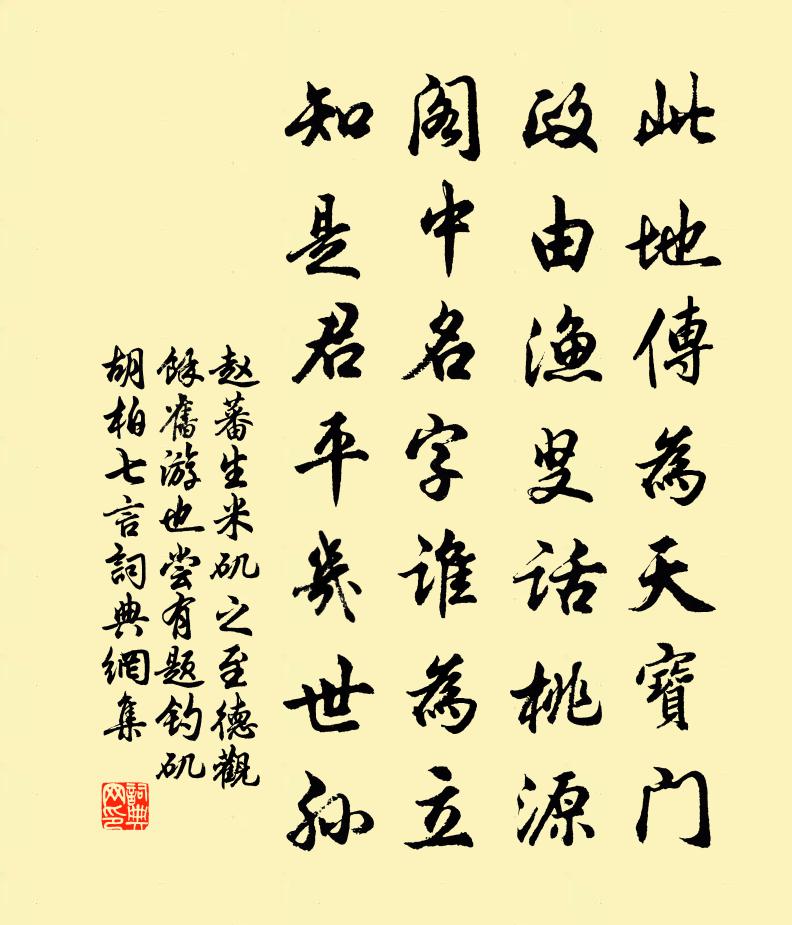 此地傳為天寶門
政由漁叟話桃源
閣中名字誰為立
知是君平幾世孫
赵蕃生米矶之至德觀
餘舊游也尝有题钓矶
胡柏七言詞典網集
詞典网印